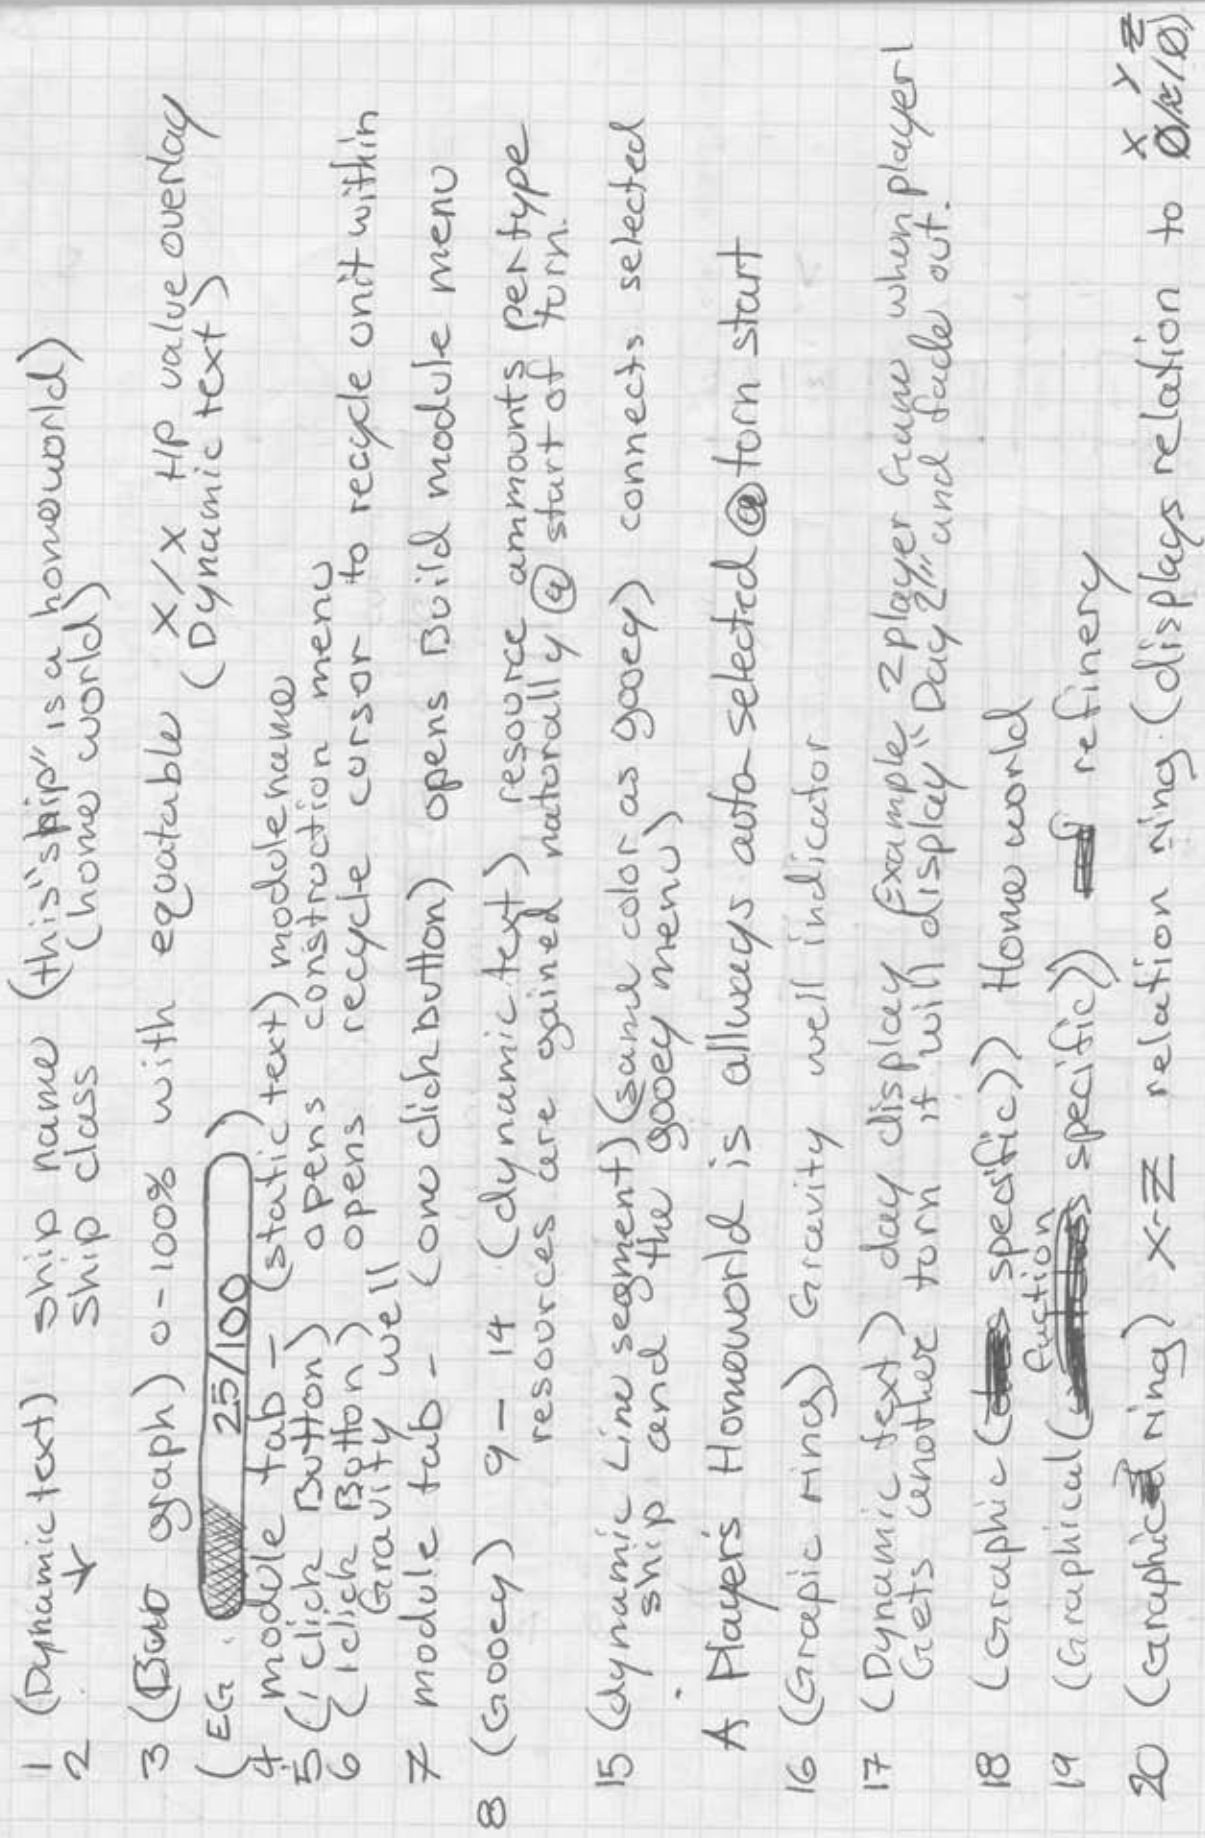 1 (Dynamic text) ship name (this "ship" is a homeworld)
2 ship class (home world)
3 (Bar graph) 0-100% with equatable X/X HP value overlay
(Dynamic text)
(EG. 25/100)
4 module tab - (static text) module name
5 (click Button) opens construction menu
6 (click Button) opens recycle cursor to recycle unit within
Gravity well
7 module tab - (one click button) opens Build module menu
8 (Gooey) 9-14 (dynamic text) resource ammounts per type
resources are gained naturally @ start of turn.
15 (dynamic Line segment) (same color as gooey) connects selected
ship and the gooey menu)
A Player's Homeworld is allways auto-selected @ torn start
16 (Grapic rings) Gravity well indicator
17 (Dynamic text) day display Example 2 player Game when player 1
Gets another turn it will display "Day 2" and fade out.
18 (Graphic ( specific)) Home world
fuction
19 (Graphical ( specific)) refinery
X Y Z
20 (Graphic ring) X-Z relation ring (displays relation to 0/x/0)